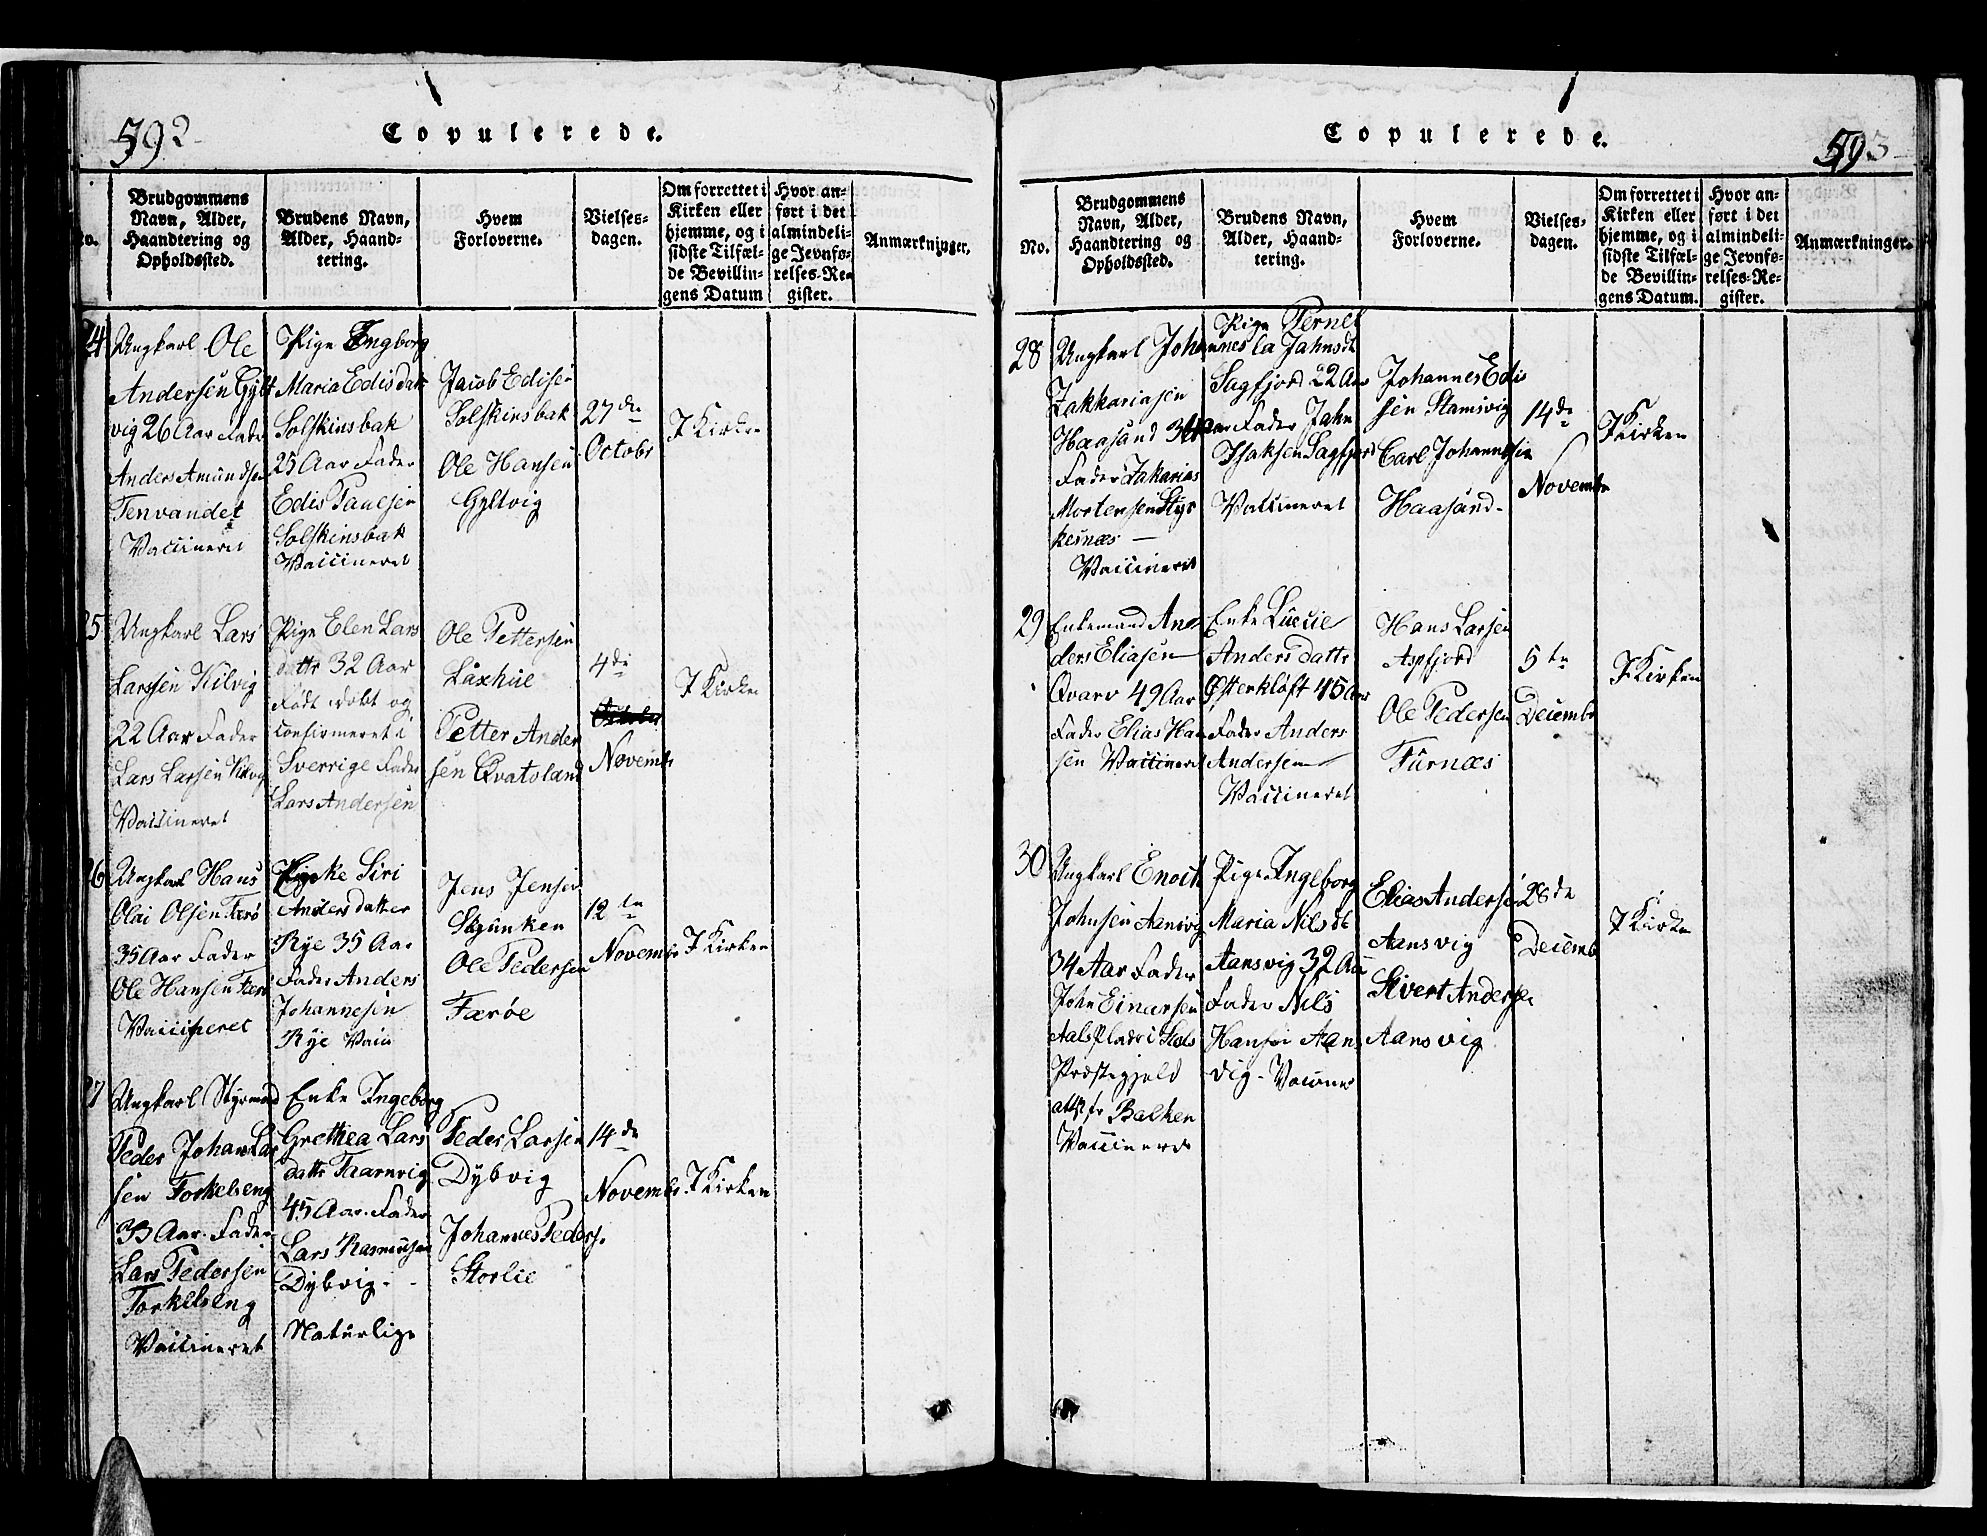 592
Copulerede.
No.
Brudgommens
Navn, Alder,
Haandtering og
Opholdssted.
Brudens Navn,
Alder, Haand-
tering.
Hvem
Forloverne.
Vielses-
dagen.
Om forrettet i
Kirken eller
hjemme, og i
sidste Tilfæl-
de Bevillin-
gens Datum
Hvor an-
ført i det
almindeli-
ge Jevnfø-
relses-Re-
gister.
Anmærkninger.
24
Ungkarl Ole
Andersen Gylt
vig 26 Aar Fader
Anders Amundsen
Tenvandet
Vaccineret
Pige Ingborg
Maria Edisdatr
Solskinsbak
25 Aar Fader
Edis Paulsen
Solskinsbak
Vaccineret
Jacob Edisen
Solskinsbak
Ole Hansen
Gyltvig
27de
Octobr
I Kirken
25
Ungkarl Lars
Larssen Kilvig
22 Aar Fader
Lars Larsen Kilvig
Vaccineret
Pige Elen Lars
dattr 32 Aar
Født döbt og
confirmeret i
Sverrige Fader
Lars Andersen
Ole Pettersen
Laxhue
Petter Ander
sen Qvatoland
4de
Novembr
I Kirken
26
Ungkarl Hans
Olai Olsen Færø
35 Aar Fader
Ole Hansen Færø
Vaccineret
Siri
Anders datter
Rye 35 Aar
Fader Anders
Johannesen
Rye Vacci
Jens Jensen
Skjunken
Ole Pedersen
Færöe
12te
Novembr
I Kirken
27
Ungkarl Styrmand
Peder Johan Lar
sen Torkelseng
33 Aar. Fader
Lars Pedersen
Torkelseng
Vaccineret
Enke Ingeborg
Grethea Lars
dattr Taarnvig
45 Aar. Fader
Lars Rasmusen
Dybvig -
Naturlige
Peder Larsen
Dybvig
Johannes Peders.
Storlie
14de
Novembr
I Kirken
593
Copulerede.
No.
Brudgommens
Navn, Alder,
Haandtering og
Opholdssted.
Brudens Navn,
Alder, Haand-
tering.
Hvem
Forloverne.
Vielses-
dagen.
Om forrettet i
Kirken eller
hjemme, og i
sidste Tilfæl-
de Bevillin-
gens Datum.
Hvor an-
ført i det
almindeli-
ge Jevnfø-
relses-Re-
gister.
Anmærkninger.
28
Ungkarl Johannes
Zakkariasen
Haasund
Fader Zakarias
Mortensen Styr
kesnæs —
Vaccineret
Pige Pernel
la Jahnsdt
Sagfjord 22 Aar
Fader Jahn
Isaksen Sagfjord
Vaccineret
Johannes Edis
sen Stamsvig
Carl Johannesen
Haasund-
14de
Novembr
I Kirken
29
Enkemand An
ders Eliasen
Qvarv 49 Aar
Fader Elias Han
sen Vaccineret
Enke Lucie
Anders dattr
Østerkløft 45 Aar
Fader Anders
Andersen
Vaccineret
Hans Larsen
Aspfjord
Ole Pedersen
Furnæs
5te
Decembr
I Kirken
30
Ungkarl Enoch
Johnsen Aansvig
34 Aar Fader
John Einersen
i
Præstegjeld
Balken
Vaccineret
Pige Ingeborg
Maria Nilsdt
Aansvig 32 Aar
Fader Nils
Hansen Aans
vig -
Elias Andersen
Aansvig
Sivert Andersen
Aansvig
28de
Decembr
I Kirken